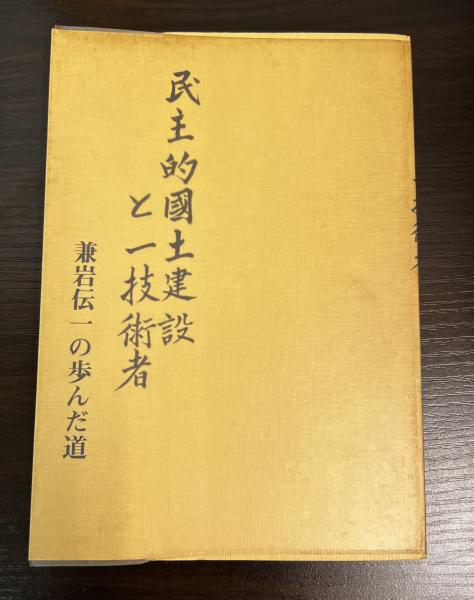 民主的國土建設
と一技術者
兼岩伝一の歩んだ道